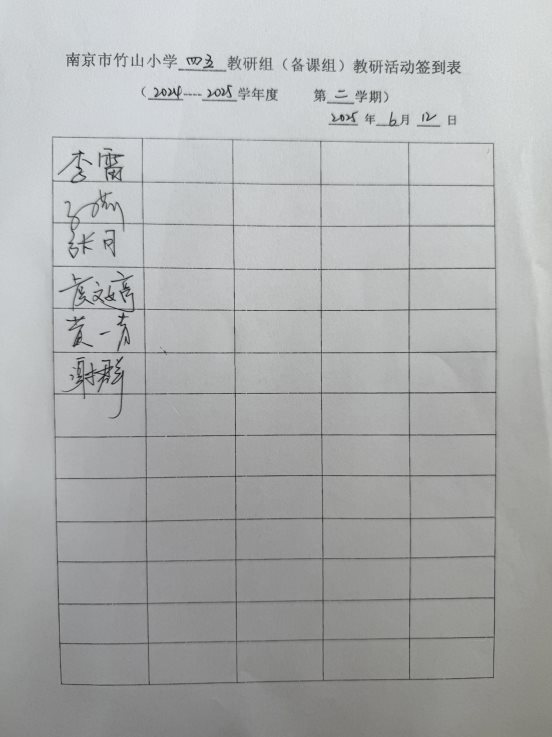 南京市竹山小学 四五 教研组（备课组）教研活动签到表
（ 2024----2025 学年度 第 二 学期）
2025 年 6 月 12 日
李雷
张月
黄一青
谢群